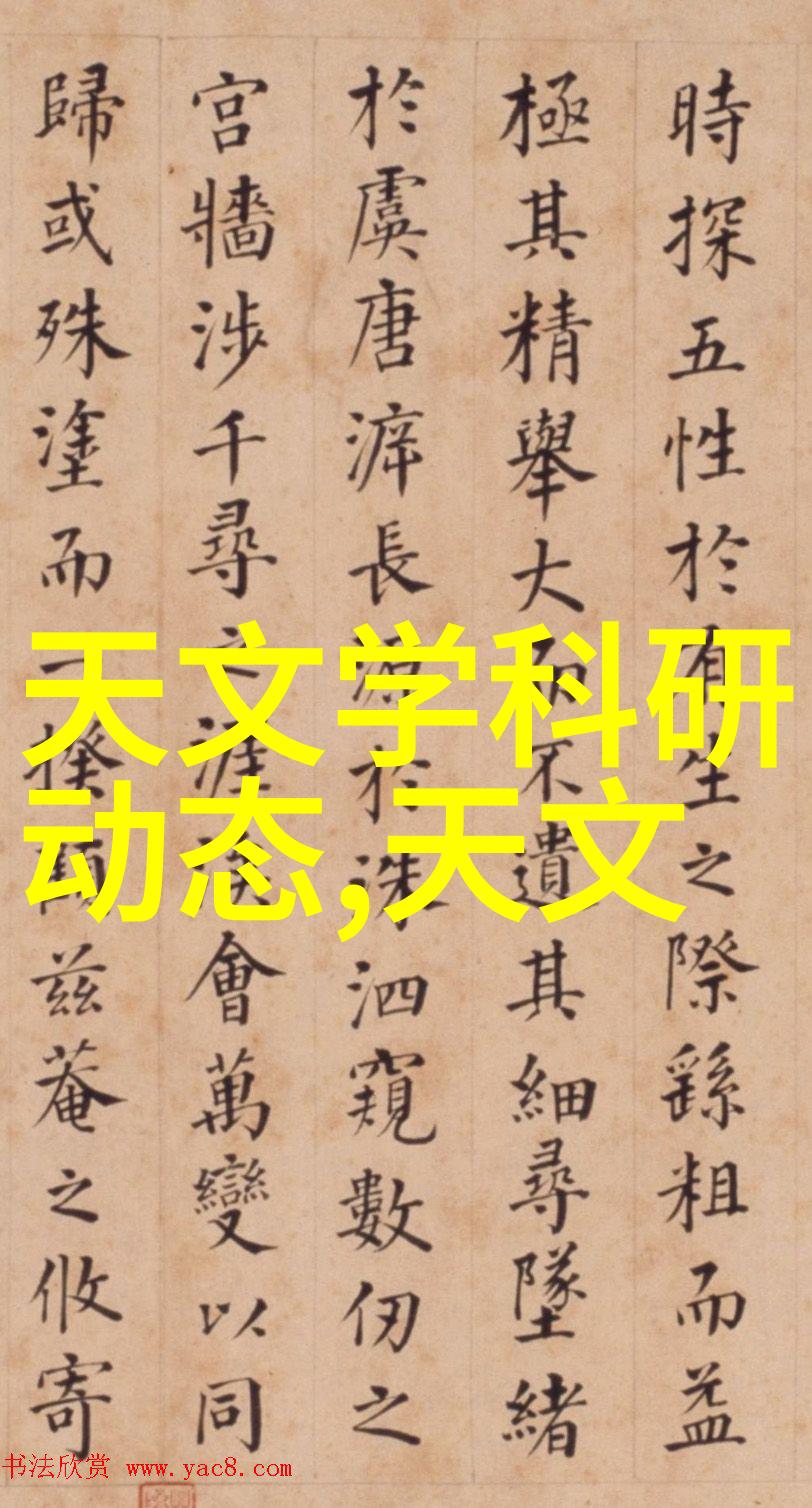 時探五性於有生之際繇粗而益
極其精舉大而不遺其細尋墜緒
於虞唐長源於洙泗窺數仞之
宮牆涉千尋之涯涘會萬變以同
歸或殊塗而一揆顧兹菴之攸寄
天文学科研
动态,天文
书法欣赏 www.yac8.com